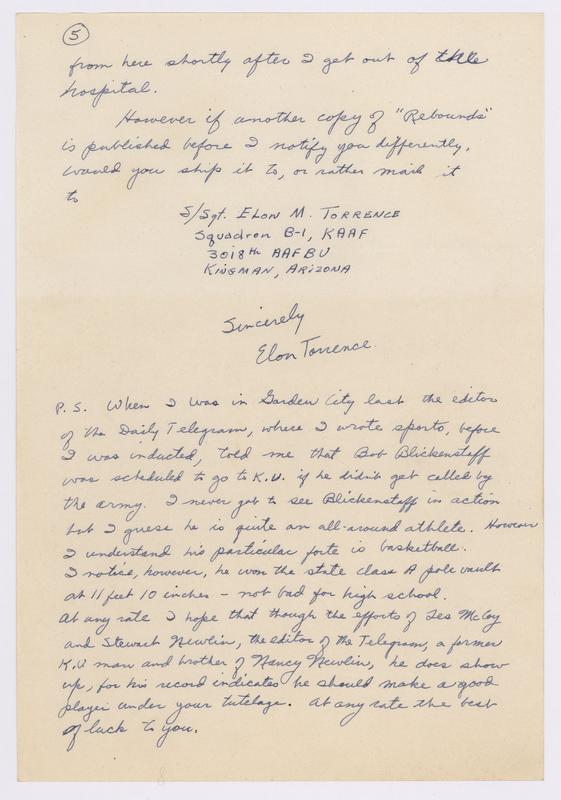 5
from here shortly after I get out of this
hospital.
However if another copy of "Rebounds"
is published before I notify you differently,
would you ship it to, or rather mail it
to
S/Sgt. ELON M. TORRENCE
Squadron B-1, KAAF
3018th AAFBU
KINGMAN, ARIZONA
Sincerely
Elon Torrence.
P.S. When I was in Garden City last the editor
of the Daily Telegram, where I wrote sports, before
I was inducted, told me that Bob Blickenstaff
was scheduled to go to K.U. if he didn't get called by
the army. I never got to see Blickenstaff in action
but I guess he is quite an all-around athlete. However
I understand his particular forte is basketball.
I notice, however, he won the state class A pole vault
at 11 feet 10 inches - not bad for high school.
At any rate I hope that though the efforts of Les McCoy
and Stewart Newlin, the editor of the Telegram, a former
K.U man and brother of Nancy Newlin, he does show
up, for his record indicates he should make a good
player under your tutelage. At any rate the best
of luck to you.